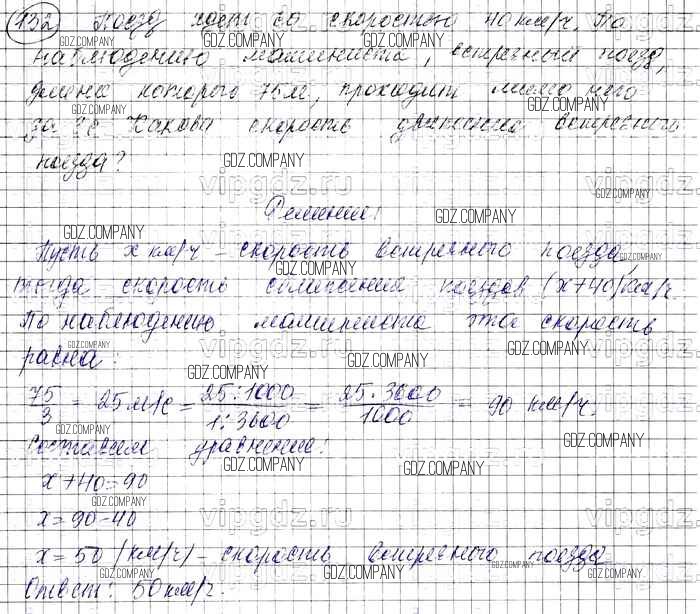 132 Поезд идет со скоростью 40 км/ч. По
GDZ.COMPANY GDZ.COMPANY GDZ.COMPANY
наблюдению машиниста, встречный поезд,
длина которого 75 м, проходит мимо него
GDZ.COMPANY GDZ.COMPANY
за 3 с. Какова скорость движения встречного
поезда?
GDZ.COMPANY
vipgdz.ru vipgdz.ru GDZ.COMPANY
Решение:
GDZ.COMPANY GDZ.COMPANY
Пусть x км/ч – скорость встречного поезда,
GDZ.COMPANY GDZ.COMPANY GDZ.COMPANY
тогда скорость сближения поездов (x+40) км/ч.
По наблюдению машиниста эта скорость
GDZ.COMPANY vipgdz.ru GDZ.COMPANY vipgdz.ru
равна:
GDZ.COMPANY GDZ.COMPANY
75/3 = 25 м/с = 25:1000/1:3600 = 25·3600/1000 = 90 км/ч.
GDZ.COMPANY GDZ.COMPANY
Составим уравнение:
GDZ.COMPANY GDZ.COMPANY
x+40=90
GDZ.COMPANY
x=90-40
vipgdz.ru vipgdz.ru
x=50 (км/ч) – скорость встречного поезда
GDZ.COMPANY GDZ.COMPANY GDZ.COMPANY GDZ.COMPANY
Ответ: 50 км/ч.